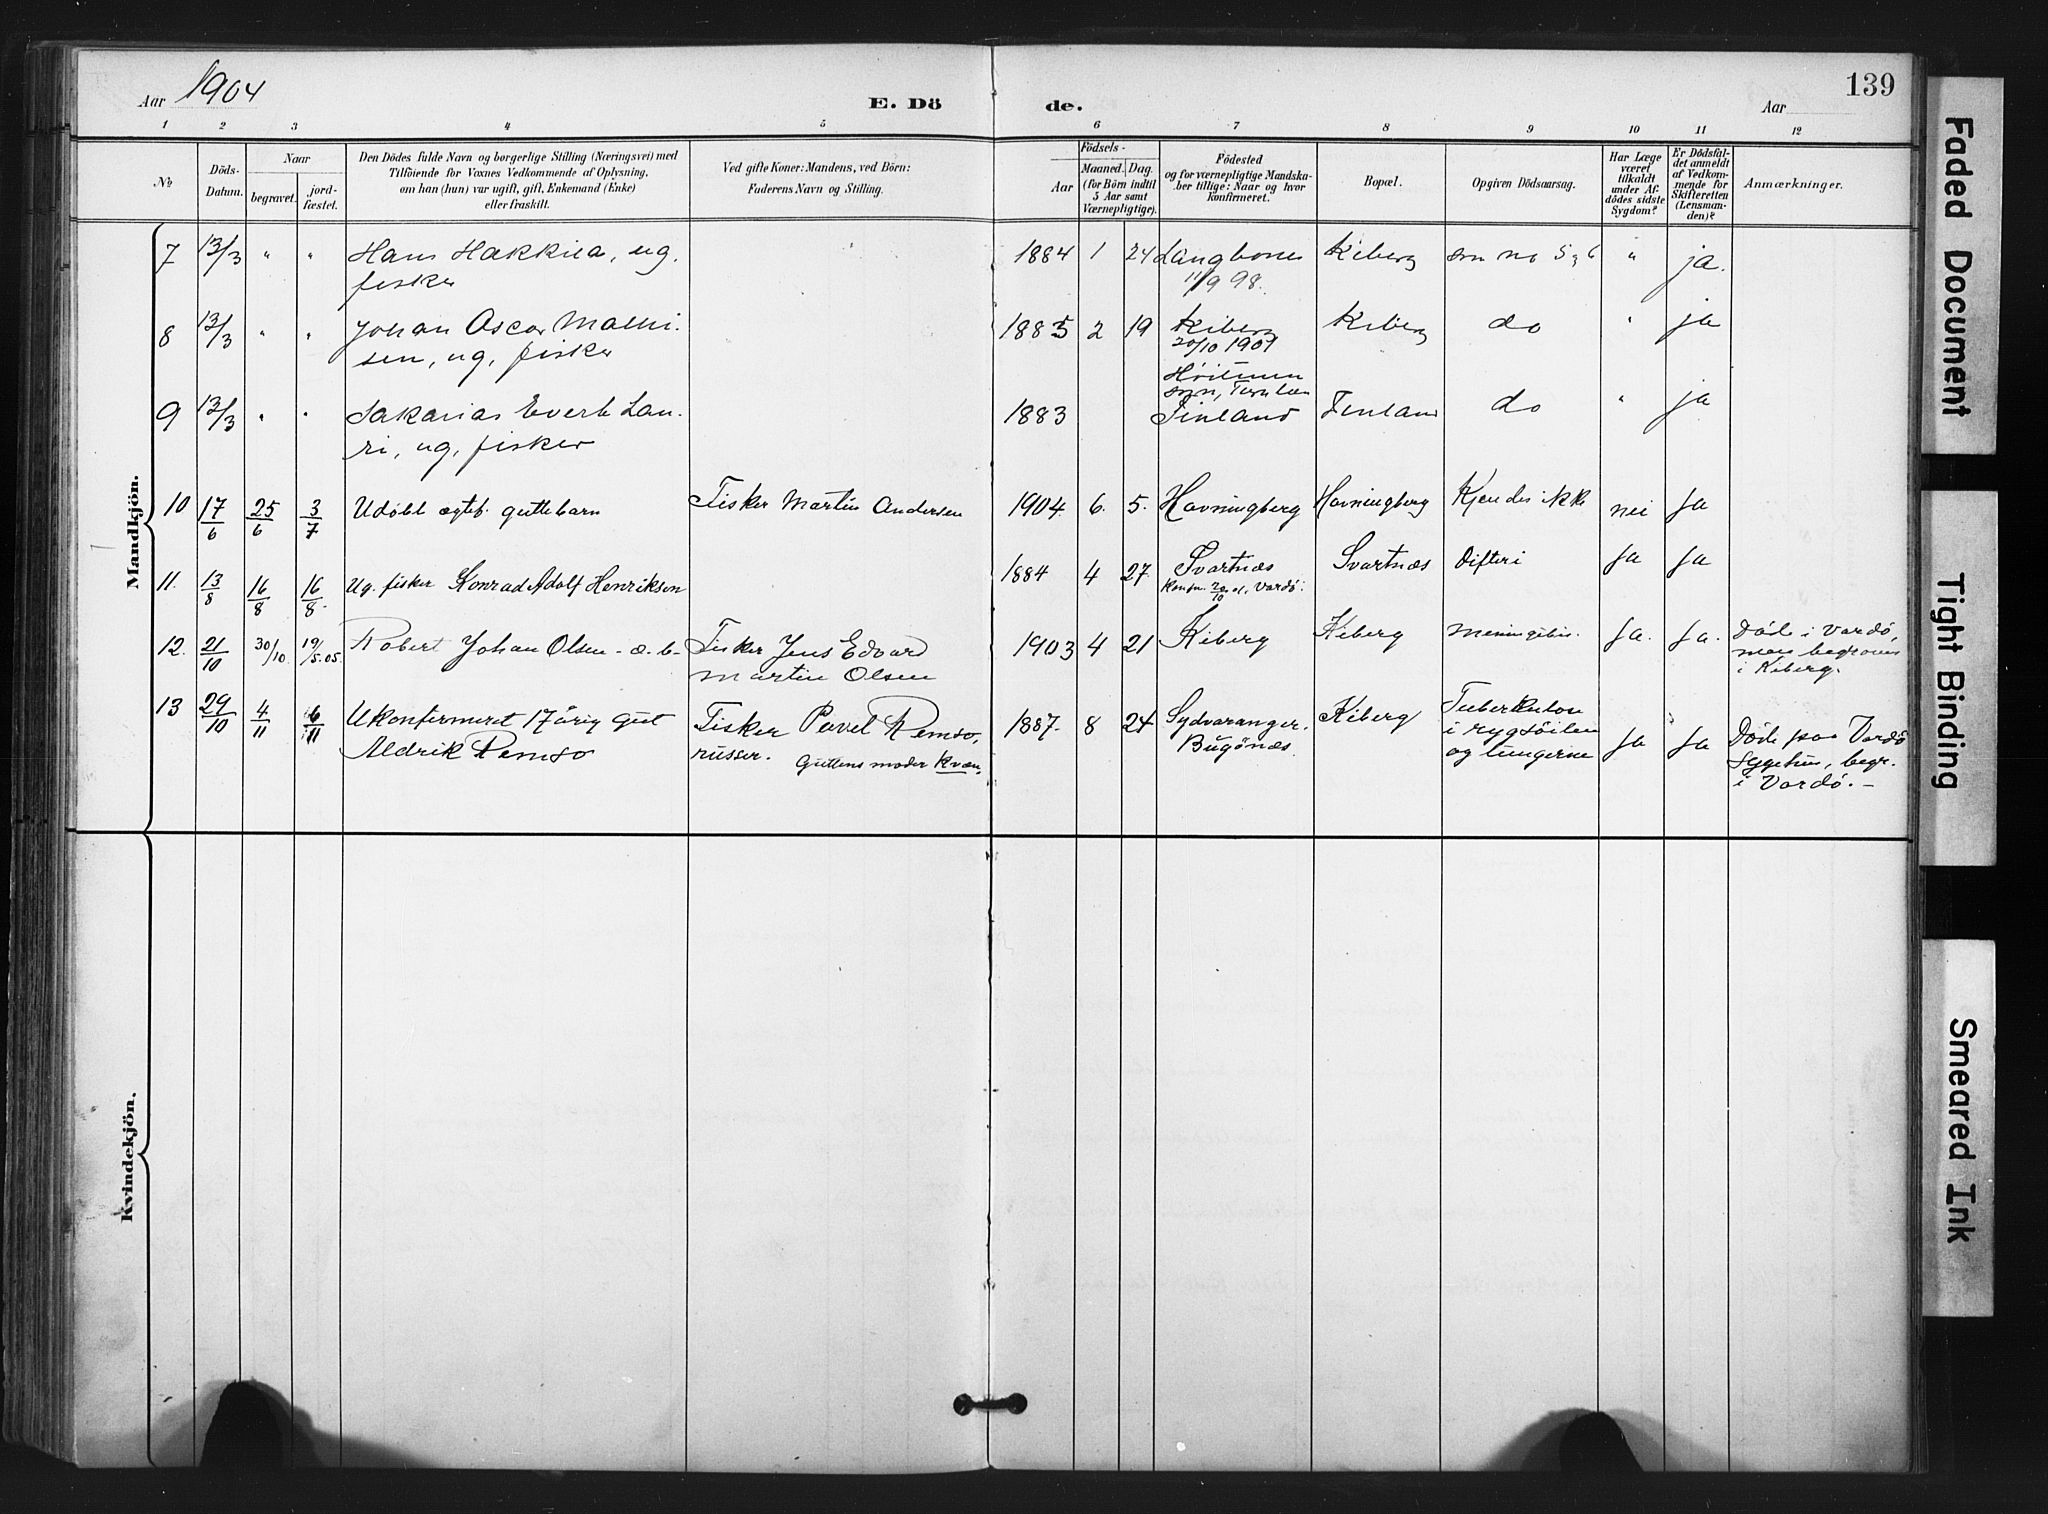 Aar 1904
E. Dö de.
Aar
139
1 2 3 4 5 6 7 8 9 10 11 12
№
Döds-
Datum.
Naar
begravet.
jord-
fæstet.
Den Dödes fulde Navn og borgerlige Stilling (Næringsvei) med
Tilföiende for Voxnes Vedkommende af Oplysning,
om han (hun) var ugift, gift, Enkemand (Enke)
eller fraskilt.
Ved gifte Koner: Mandens, ved Börn:
Faderens Navn og Stilling.
Födsels-
Aar
Maaned. Dag.
(for Börn indtil
5 Aar samt
Værnepligtige).
Födested
og for værnepligtige Mandska-
ber tillige: Naar og hvor
Konfirmeret.
Bopæl.
Opgiven Dödsaarsag.
Har Læge
været
tilkaldt
under Af-
dödes sidste
Sygdom?
Er Dödsfal-
det anmeldt
af Vedkom-
mende for
Skifteretten
(Lensman-
den)?
Anmærkninger.
Mandkjön.
7 13/3 " " Hans Hakkila, ug. 1884 1 24 Langbones Kiberg som no 5 og 6 " ja.
fisker 11/9 98.
8 13/3 " " Johan Oscar Mathi- 1885 2 19 Kiberg Kiberg do " ja
sen, ug, fisker 20/10 1901
9 13/3 " " Sakarias Evert Lau- 1883 Finland Finland do " ja
ri, ug, fisker
10 17/6 25/6 3/7 Udöbt ægtef. guttebarn Fisker Martin Andersen 1904. 6. 5. Havningberg Havningberg Kjendes ikke nei Ja
11. 13/8 16/8 16/8. Ug. fisker Konrad Adolf Henriksen 1884 4 27. Svartnæs Svartnæs Difteri Ja Ja
Vardö.
12. 21/10 30/10. 19/5.05. Robert Johan Olsen - æ. b- Fisker Jens Edvard 1903 4 21 Kiberg Kiberg Meningitis. Ja. Ja. Döde i Vardö,
Martin Olsen men begraves
i Kiberg.
13 29/10 4/11 6/11 Ukonfirmeret 17 årig gut Fisker Pavel Remso, 1887. 8 24 Sydvaranger. Kiberg Tuberkulose Ja Ja Döde paa Vardö
Aldrik Remso russer. Guttens moder kvæn. Bugönæs. i rygsöilen Sygehus, begr.
og lungerne i Vardö. -
Kvindekjön.
Faded Document
Tight Binding
Smeared Ink